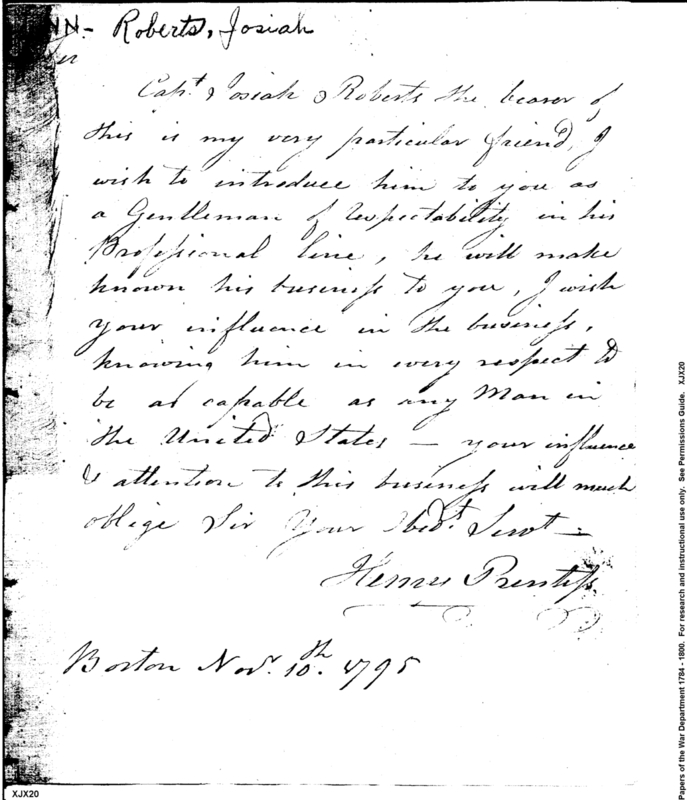 NN- Roberts, Josiah
Capt Josiah Roberts the bearer of
this is my very particular friend, I
wish to introduce him to you as
a Gentleman of respectability in his
Professional line, he will make
known his business to you, I wish
your influence in the business,
knowing him in every respect to
be as capable as any Man in
the United States — your influence
& attention to this business will much
oblige Sir Your Obedt Servt —
Henry Prentiss
Boston Novr. 10th. 1795
XJX20
Papers of the War Department 1784 - 1800. For research and instructional use only. See Permissions Guide. XJX20